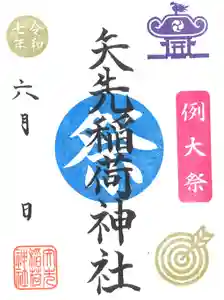 例大祭
矢先稲荷神社
祭
令和
七年
六月　日
矢先
稲荷
神社